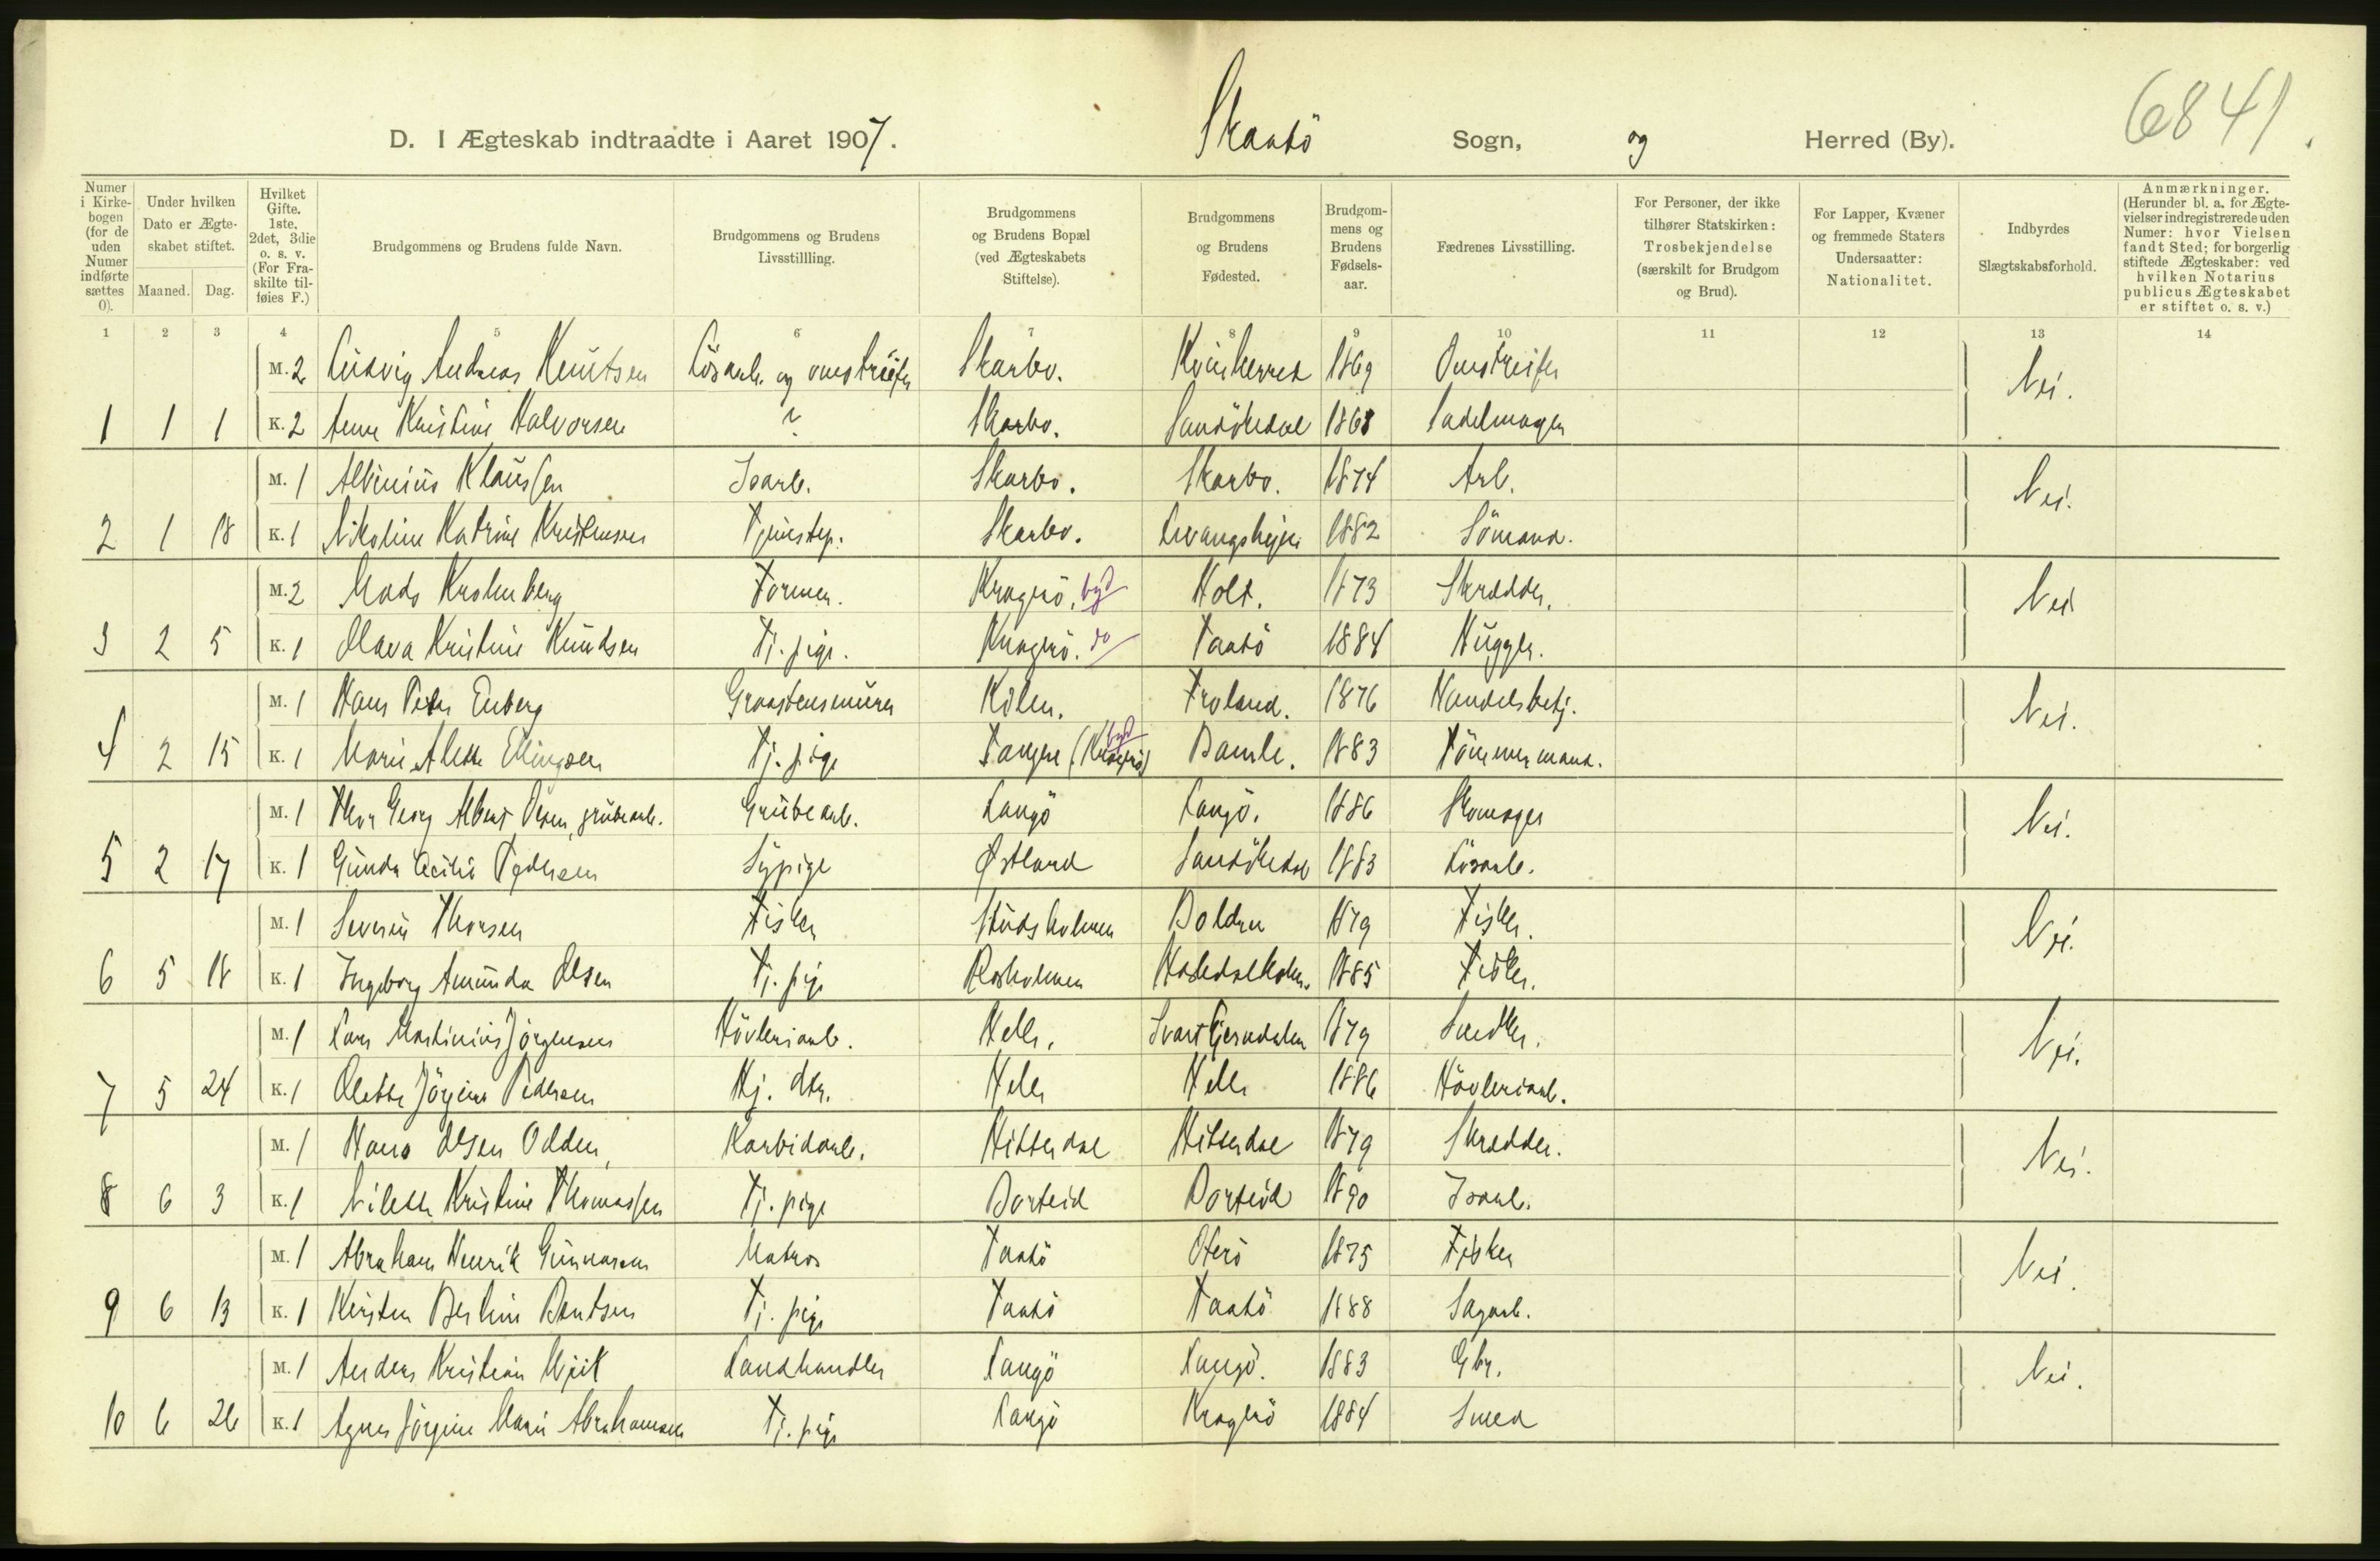 6841.
D. I Ægteskab indtraadte i Aaret 1907. Skaatö Sogn, og Herred (By).
Numer i Kirkebogen (for de uden Numer indførte sættes 0).
Under hvilken Dato er Ægteskabet stiftet.
Maaned. Dag.
Hvilket Gifte. 1ste, 2det, 3die o. s. v. (For Fraskilte tilføies F.)
Brudgommens og Brudens fulde Navn.
Brudgommens og Brudens Livsstillling.
Brudgommens og Brudens Bopæl (ved Ægteskabets Stiftelse).
Brudgommens og Brudens Fødested.
Brudgommens og Brudens Fødselsaar.
Fædrenes Livsstilling.
For Personer, der ikke tilhører Statskirken: Trosbekjendelse (særskilt for Brudgom og Brud).
For Lapper, Kvæner og fremmede Staters Undersaatter: Nationalitet.
Indbyrdes Slægtskabsforhold.
Anmærkninger. (Herunder bl. a. for Ægtevielser indregistrerede uden Numer: hvor Vielsen fandt Sted; for borgerlig stiftede Ægteskaber: ved hvilken Notarius publicus Ægteskabet er stiftet o. s. v.)
1 2 3 4 5 6 7 8 9 10 11 12 13 14
M. 2 Ludvig Andreas Knutsen Lösarb. og omstreifer Skarbo. Kvinherred 1869 Omstreifer Nei.
1 1 1 K. 2 Anne Kristine Halvorsen ? Skarbo. Sandökedal 1868 Sadelmager
M. 1 Albinius Klaussen Isarb. Skarbo. Skarbo. 1874 Arb. Nei.
2 1 18 K. 1 Nikoline Katrine Kristensen Tjenstep. Skarbo. 1882 Sömand.
M. 2 Mads Kronenberg Former. Kragerö. byd Holt. 1873 Skrædder. Nei
3 2 5 K. 1 Olava Kristine Knudsen Tj. pige. Kragerö. do Taatö 1884 Hugger.
M. 1 Hans Peter Enberg Graastensmurer Kilen. Froland. 1876 Handelsbetj. Nei.
4 2 15 K. 1 Marie Alette Ellingsen Tj. pige Tangen (Kragerö) byd Bamle. 1883 Tömmermand.
M. 1 Thor Georg Albert Olsen, grubearb. Grubearb. Langö Langö. 1886 Skomager Nei.
5 2 17 K. 1 Gunda Cecilie Pedersen Sypige Østland Sandökedal 1883 Lösarb.
M. 1 Severin Thorsen Fisker Studsholmen 1879 Fisker. Nei.
6 5 18 K. 1 Ingeborg Amunda Olsen Tj. pige 1885 Fisker.
M. 1 Lars Martinius Jörgensen Hövleriarb. Helle. Svarttjerndalen 1879 Snedker. Nei.
7 5 24 K. 1 Olette Jörgine Pedersen Hj. dtr. Helle Helle 1886 Hövleriarb.
M. 1 Hans Olsen Odden, Karbidarb. Hitterdal Hitterdal 1879 Skrædder. Nei.
8 6 3 K. 1 Nilette Kristine Thomassen Tj. pige Borteid Borteid 1890 Isarb.
M. 1 Abraham Henrik Gunnarsen Matros Taatö Oterö 1875 Fisker Nei.
9 6 13 K. 1 Kirsten Bertine Bentsen Tj. pige Taatö Taatö 1888 Sagarb.
M. 1 Anders Kristian Wiik Landhandler Langö Langö. 1883 Gbr. Nei.
10 6 26 K. 1 Agnes Jörgine Marie Abrahamsen Tj. pige Langö Kragerö 1884 Smed